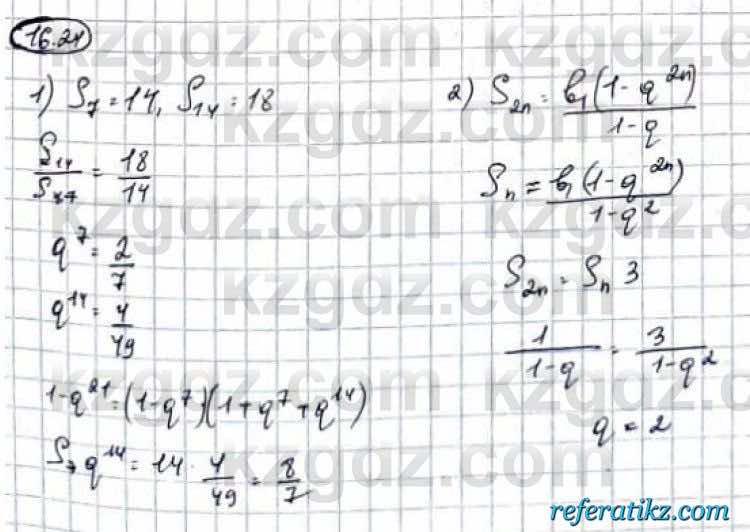 16.24
1) S₇ = 14, S₁₄ = 18
S₁₄/S₇ = 18/14
q⁷ = 2/7
q¹⁴ = 4/49
1-q²¹ = (1-q⁷)(1+q⁷+q¹⁴)
S₇ q¹⁴ = 14 · 4/49 = 8/7
2) S₂ₙ = b₁(1-q²ⁿ)/1-q
Sₙ = b₁(1-q²ⁿ)/1-q²
S₂ₙ = Sₙ 3
1/1-q = 3/1-q²
q = 2
kzgdz.com
referatikz.com